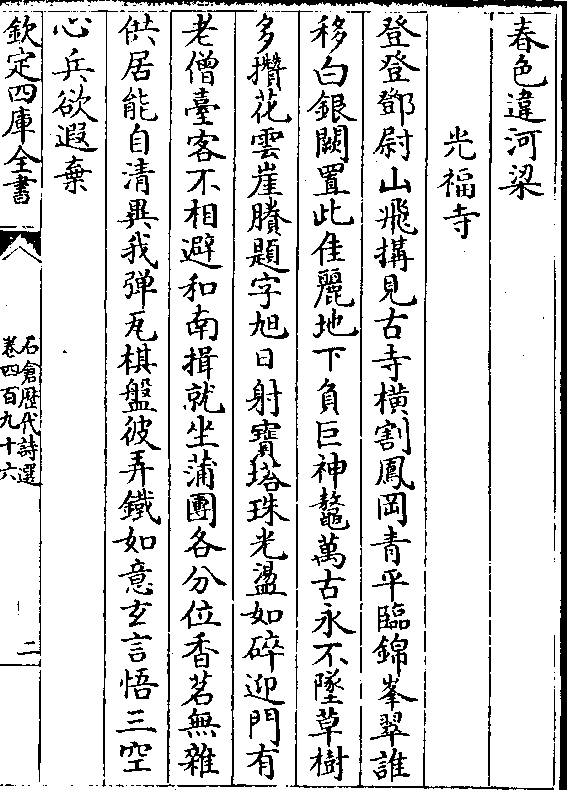 春色違河梁
光福寺
登登鄧尉山飛搆見古寺橫割鳳岡青平臨錦峯翠誰
移白銀闕置此佳麗地下負巨神鼇萬古永不墜草樹
多攢花雲崖賸題字旭日射寶塔珠光盪如碎迎門有
老僧臺客不相避和南揖就坐蒲團各分位香茗無雜
供居能自清異我弹瓦棋盤彼弄鐵如意玄言悟三空
心兵欲遐棄
欽定四庫全書
石倉歷代詩選
卷四百九十六
二